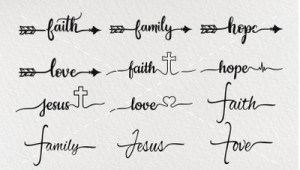 faith family hope
love faith hope
Jesus love faith
family Jesus love